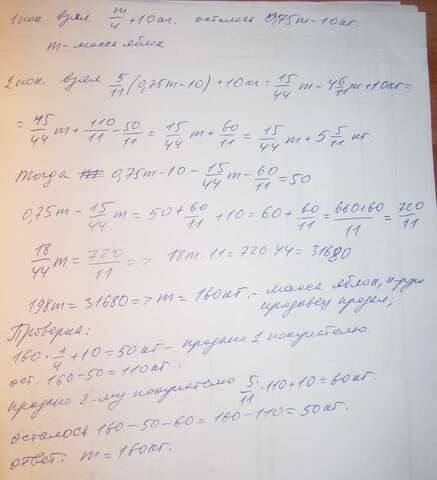 1 пок. взял. m/4 + 10 кг. осталось 0,75m - 10 кг.
m - масса яблок
2 пок. взял 5/11 (0,75m - 10) + 10 кг = 15/44 m - 4 6/11 кг + 10 кг =
= 15/44 m + 110/11 - 50/11 = 15/44 m + 60/11 = 15/44 m + 5 5/11 кг.
Тогда 0,75m - 10 - 15/44 m - 60/11 = 50
0,75m - 15/44 m = 50 + 60/11 + 10 = 60 + 60/11 = (660+60)/11 = 720/11
18/44 m = 720/11 => 18m·11 = 720·44 = 31680
198m = 31680 => m = 160 кг. - масса яблок, к-рую
продавец продал;
Проверка:
160 · 1/4 + 10 = 50 кг - продано 1 покупателю.
ост. 160 - 50 = 110 кг.
продано 2-му покупателю 5/11 · 110 + 10 = 60 кг.
осталось 160 - 50 - 60 = 160 - 110 = 50 кг.
ответ: m = 160 кг.